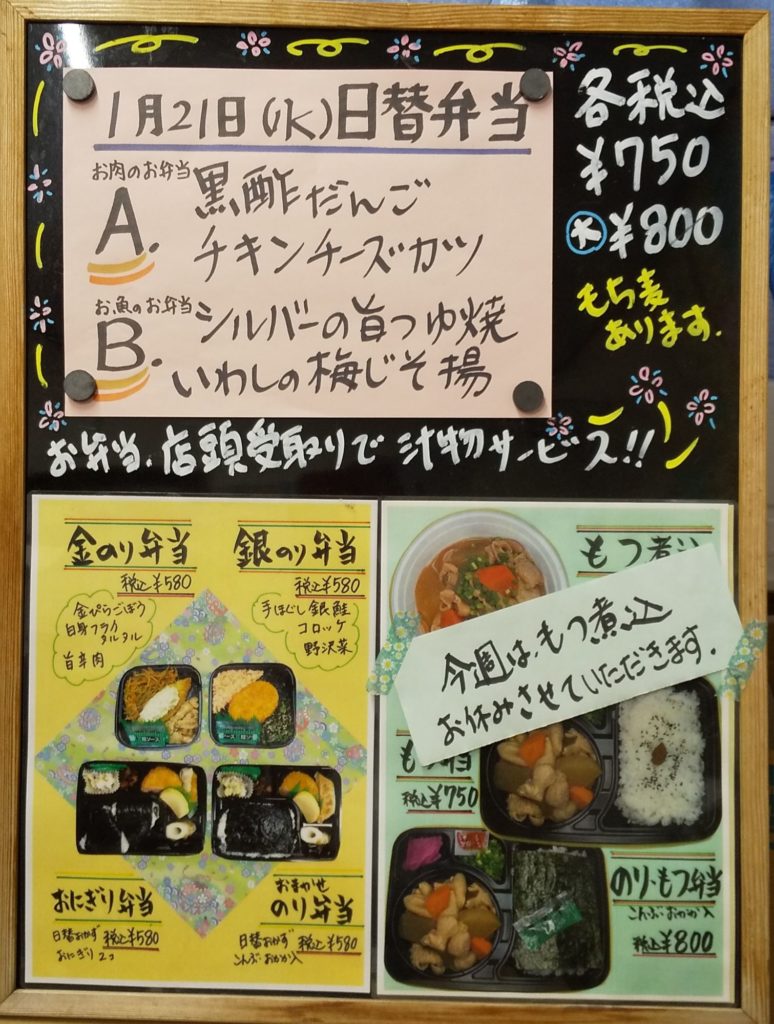 1月21日(水)日替弁当
お肉のお弁当
A.
黒酢だんご
チキンチーズカツ
お魚のお弁当
B.
シルバーの旨つゆ焼
いわしの梅じそ揚
各税込
¥750
大¥800
もち麦
あります.
お弁当、店頭受取りで 汁物サービス!!
金のり弁当
税込¥580
金ぴらごぼう
白身フライ
タルタル
旨辛肉
銀のり弁当
税込¥580
手ほぐし銀鮭
コロッケ
野沢菜
おにぎり弁当
日替おかず 税込¥580
おにぎり2コ
おまかせ
のり弁当
日替おかず 税込¥580
こんぶ・おかか入
もつ煮込
今週は、もつ煮込
お休みさせていただきます.
税込¥750
のり・もつ弁当
こんぶ・おかか入
税込¥800